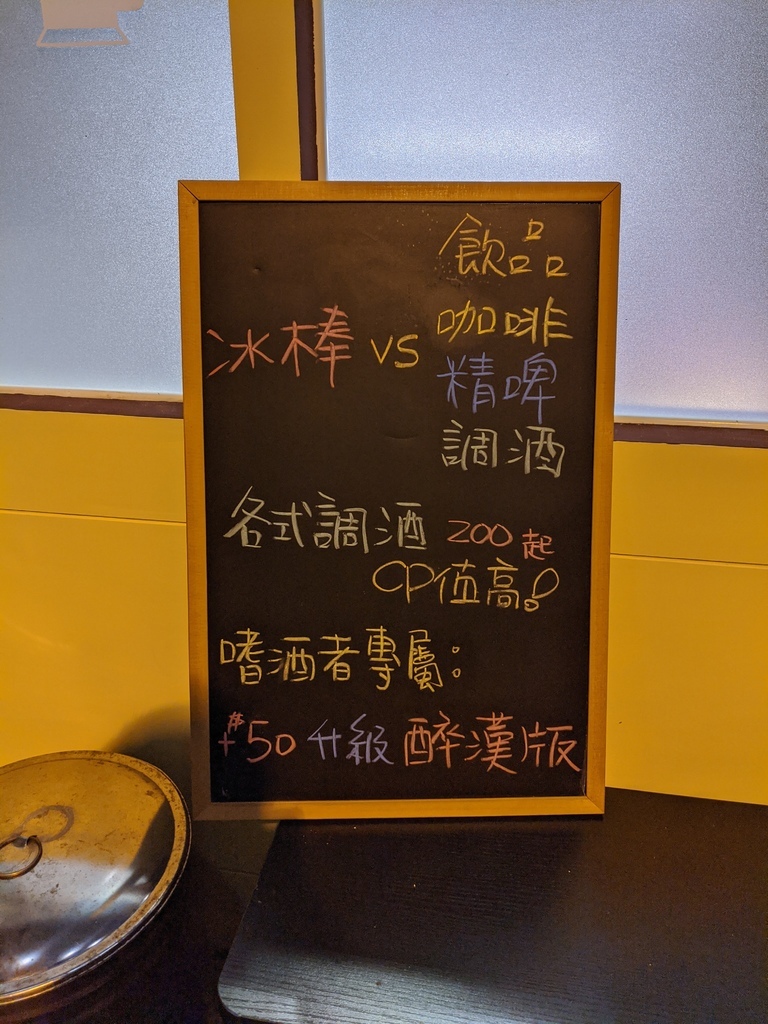 飲品
咖啡
冰棒 vs
精啤
調酒
各式調酒 200起
CP值高!
嗜酒者專屬:
+$50 升級 醉漢版